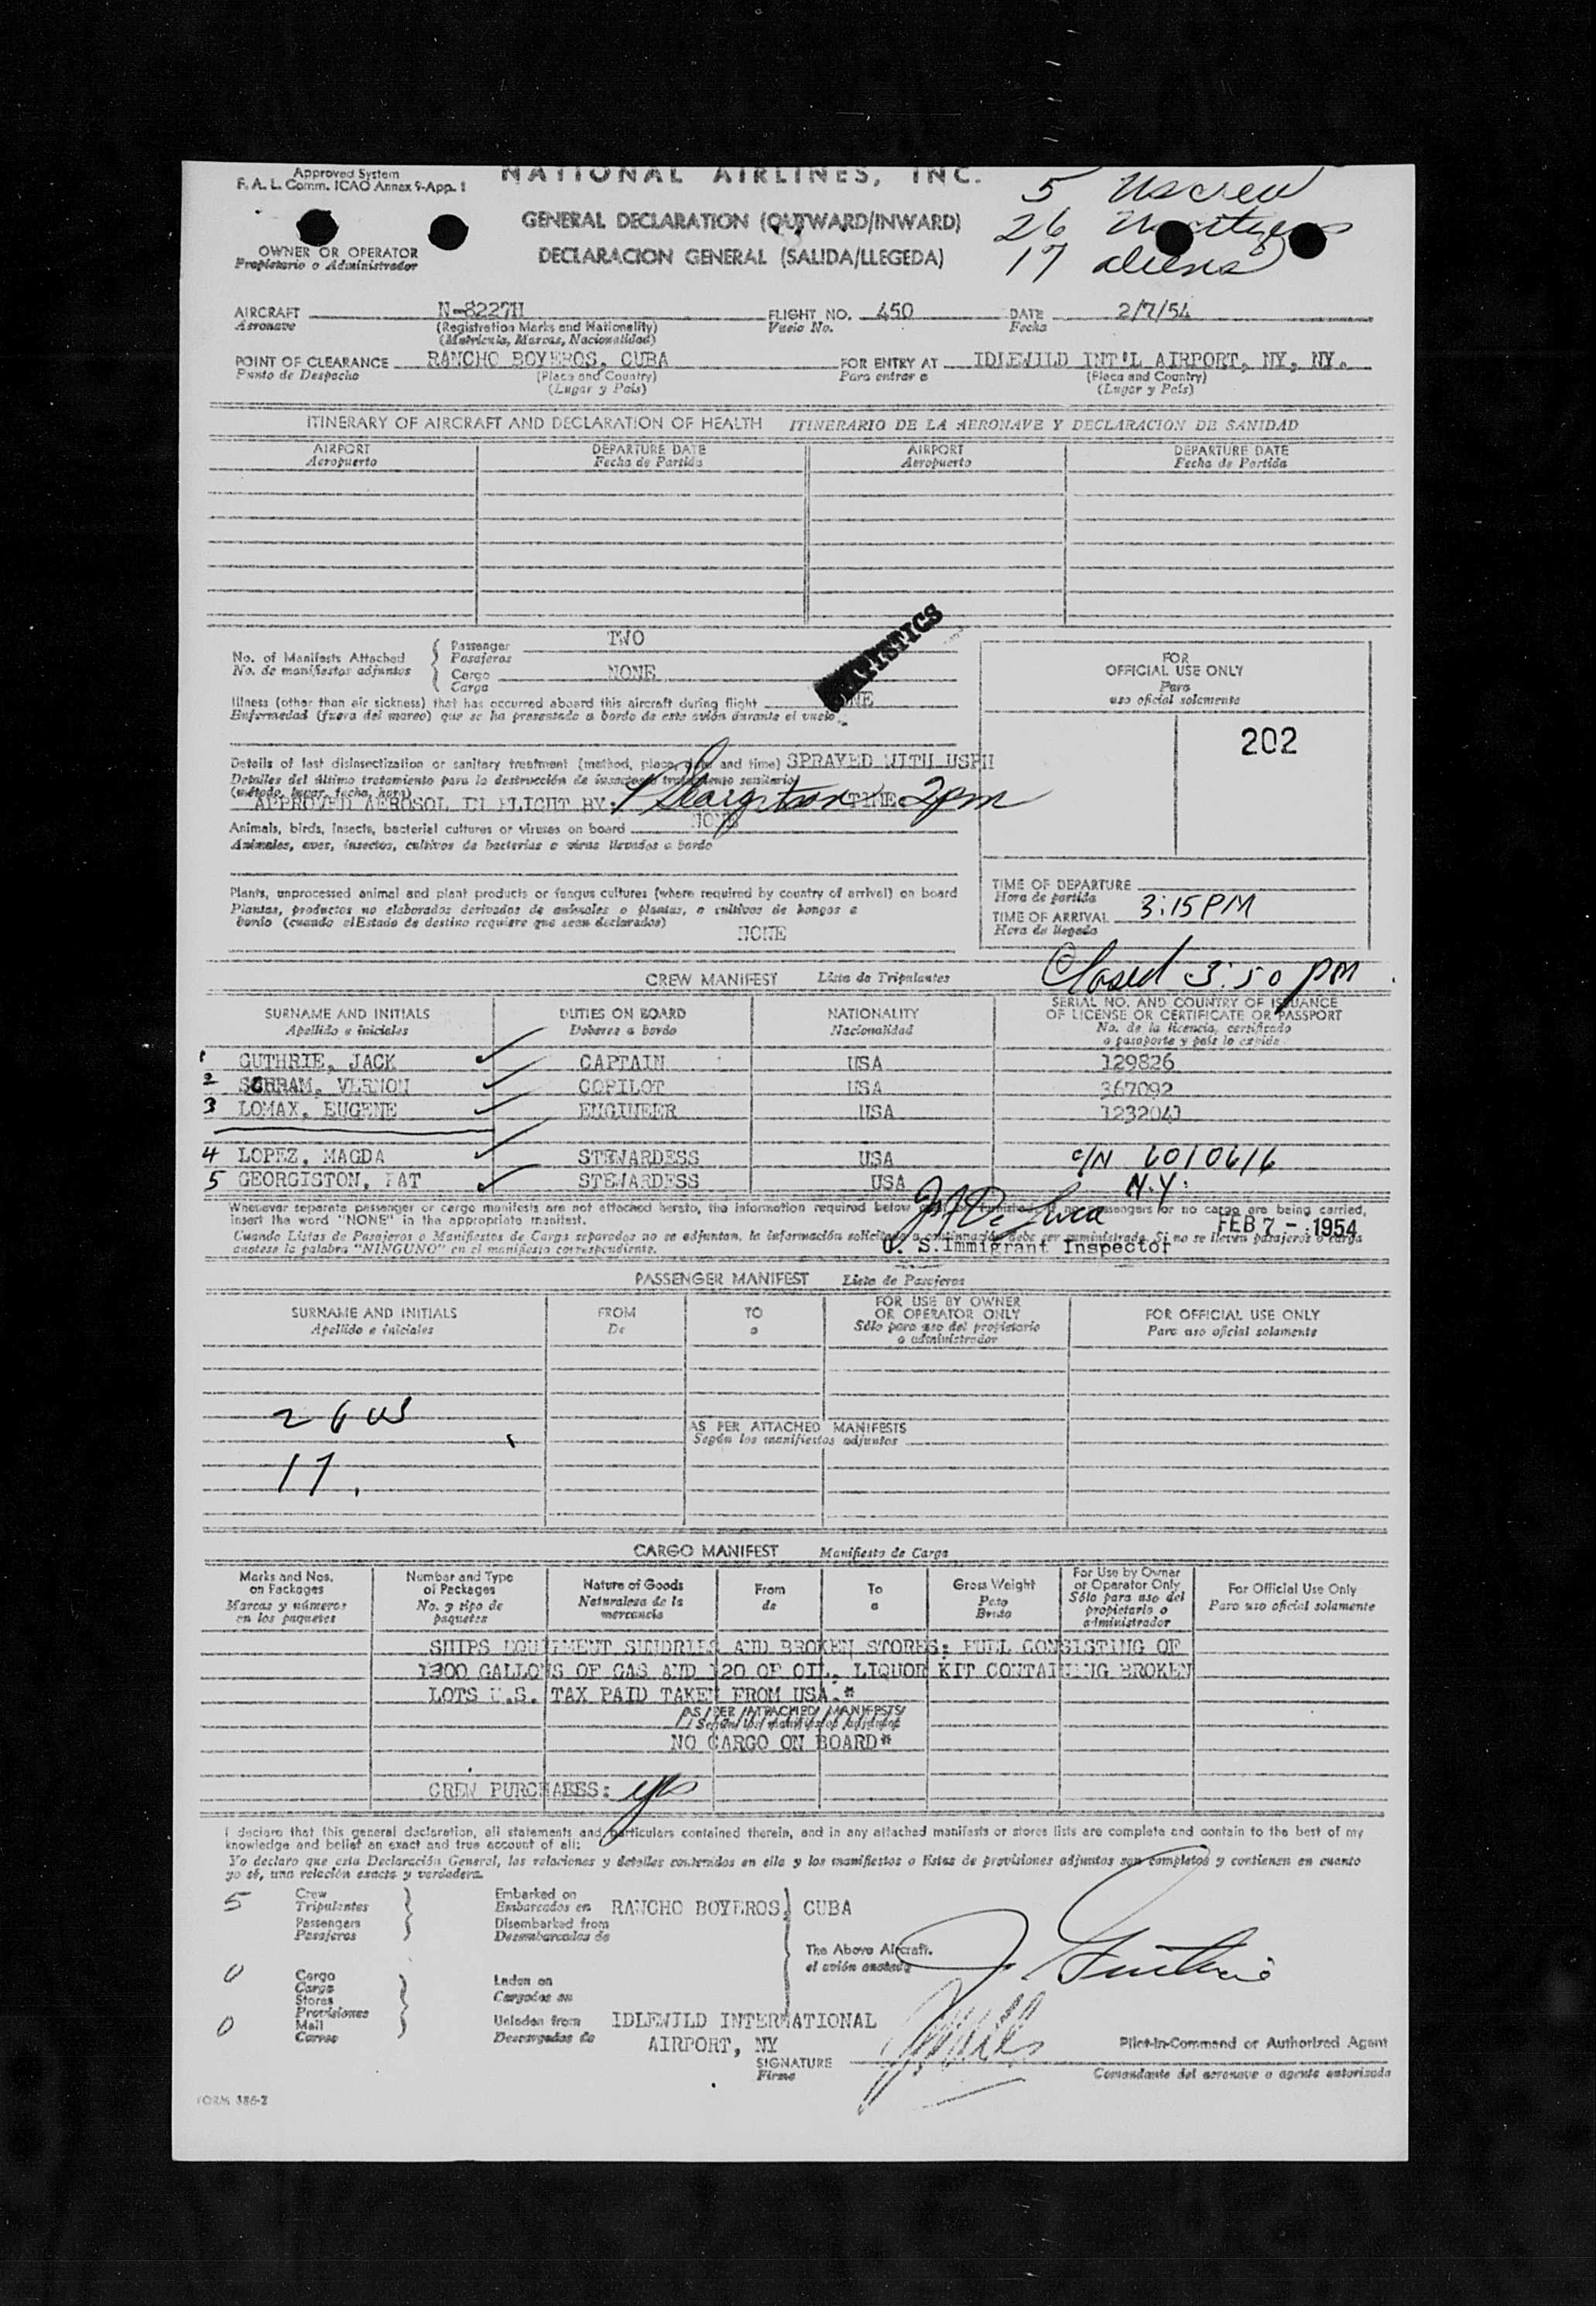 Approved System
F. A. L. Comm. ICAO Annex 9-App. 1
NATIONAL AIRLINES, INC.
5 US crew
26
17 aliens
GENERAL DECLARATION (OUTWARD/INWARD)
DECLARACION GENERAL (SALIDA/LLEGEDA)
OWNER OR OPERATOR
Propietario o Administrador
AIRCRAFT N-8227H FLIGHT NO. 450 DATE 2/7/54
Aeronave (Registration Marks and Nationality) Vuelo No. Fecha
(Matricula, Marcas, Nacionalidad)
POINT OF CLEARANCE RANCHO BOYEROS, CUBA FOR ENTRY AT IDLEWILD INT'L AIRPORT, NY, NY.
Punto de Despacho (Place and Country) Para entrar a (Place and Country)
(Lugar y País) (Lugar y País)
ITINERARY OF AIRCRAFT AND DECLARATION OF HEALTH ITINERARIO DE LA AERONAVE Y DECLARACION DE SANIDAD
AIRPORT DEPARTURE DATE AIRPORT DEPARTURE DATE
Aeropuerto Fecha de Partida Aeropuerto Fecha de Partida
No. of Manifests Attached
No. de manifiestos adjuntos
Passenger TWO
Pasajeros
Cargo NONE
Carga
STATISTICS
Illness (other than air sickness) that has occurred aboard this aircraft during flight NONE
Enfermedad (fuera del mareo) que se ha presentado a bordo de este avión durante el vuelo
FOR
OFFICIAL USE ONLY
Para
uso oficial solamente
202
Details of last disinsectization or sanitary treatment (method, place, date and time) SPRAYED WITH USPH
Detalles del último tratamiento para la destrucción de insectos o tratamiento sanitario
(método, lugar, fecha, hora)
APPROVED AEROSOL IN FLIGHT BY: P Georgitson TIME 2pm
Animals, birds, insects, bacterial cultures or viruses on board NONE
Animales, aves, insectos, cultivos de bacterias o virus llevados a bordo
Plants, unprocessed animal and plant products or fungus cultures (where required by country of arrival) on board
Plantas, productos no elaborados derivados de animales o plantas, o cultivos de hongos a
bordo (cuando el Estado de destino requiere que sean declarados)
NONE
TIME OF DEPARTURE
Hora de partida
TIME OF ARRIVAL 3:15 PM
Hora de llegada
Closed 3:50 pm
CREW MANIFEST Lista de Tripulantes
SURNAME AND INITIALS DUTIES ON BOARD NATIONALITY SERIAL NO. AND COUNTRY OF ISSUANCE
OF LICENSE OR CERTIFICATE OR PASSPORT
Apellido e iniciales Deberes a bordo Nacionalidad No. de la licencia, certificado
o pasaporte y país lo expide
1 GUTHRIE, JACK CAPTAIN USA 129826
2 SCHRAM, VERNON COPILOT USA 367092
3 LOMAX, EUGENE ENGINEER USA 1232041
4 LOPEZ, MAGDA STEWARDESS USA c/N 6010616
5 GEORGISTON, PAT STEWARDESS USA N.Y.
Whenever separate passenger or cargo manifests are not attached hereto, the information required below must be furnished. If no passengers or no cargo are being carried,
insert the word "NONE" in the appropriate manifest.
Cuando Listas de Pasajeros o Manifiestos de Carga separados no se adjuntan, la información solicitada a continuación debe ser suministrada. Si no se lleven pasajeros o carga
anotese la palabra "NINGUNO" en el manifiesto correspondiente.
FEB 7 - 1954
U. S. Immigrant Inspector
PASSENGER MANIFEST Lista de Pasajeros
SURNAME AND INITIALS FROM TO FOR USE BY OWNER
OR OPERATOR ONLY FOR OFFICIAL USE ONLY
Apellido e iniciales De a Sólo para uso del propietario
o administrador Para uso oficial solamente
26 US
AS PER ATTACHED MANIFESTS
Según los manifiestos adjuntos
17
CARGO MANIFEST Manifiesto de Carga
Marks and Nos.
on Packages
Marcas y números
en los paquetes
Number and Type
of Packages
No. y tipo de
paquetes
Nature of Goods
Naturaleza de la
mercancia
From
de
To
a
Gross Weight
Peso
Bruto
For Use by Owner
or Operator Only
Sólo para uso del
propietario o
administrador
For Official Use Only
Para uso oficial solamente
SHIPS EQUIPMENT SUNDRIES AND BROKEN STORES: FUEL CONSISTING OF
1300 GALLONS OF GAS AND 120 OF OIL. LIQUOR KIT CONTAINING BROKEN
LOTS U.S. TAX PAID TAKEN FROM USA.*
AS PER ATTACHED MANIFESTS
Según los manifiestos adjuntos
NO CARGO ON BOARD*
CREW PURCHASES: yes
I declare that this general declaration, all statements and particulars contained therein, and in any attached manifests or stores lists are complete and contain to the best of my
knowledge and belief an exact and true account of all:
Yo declaro que esta Declaración General, las relaciones y detalles contenidos en ella y los manifiestos o listas de provisiones adjuntos son completos y contienen en cuanto
yo sé, una relación exacta y verdadera.
5 Crew
Tripulantes
Passengers
Pasajeros
Embarked on
Embarcados en RANCHO BOYEROS, CUBA
Disembarked from
Desembarcados de
The Above Aircraft.
el avión anotado
J. Guthrie
0 Cargo
Carga
Stores
Provisiones
0 Mail
Correo
Laden on
Cargados en
Unloden from IDLEWILD INTERNATIONAL
Descargados de AIRPORT, NY
SIGNATURE
Firma
Pilot-in-Command or Authorized Agent
Comandante del aeronave o agente autorizado
FORM 386-2